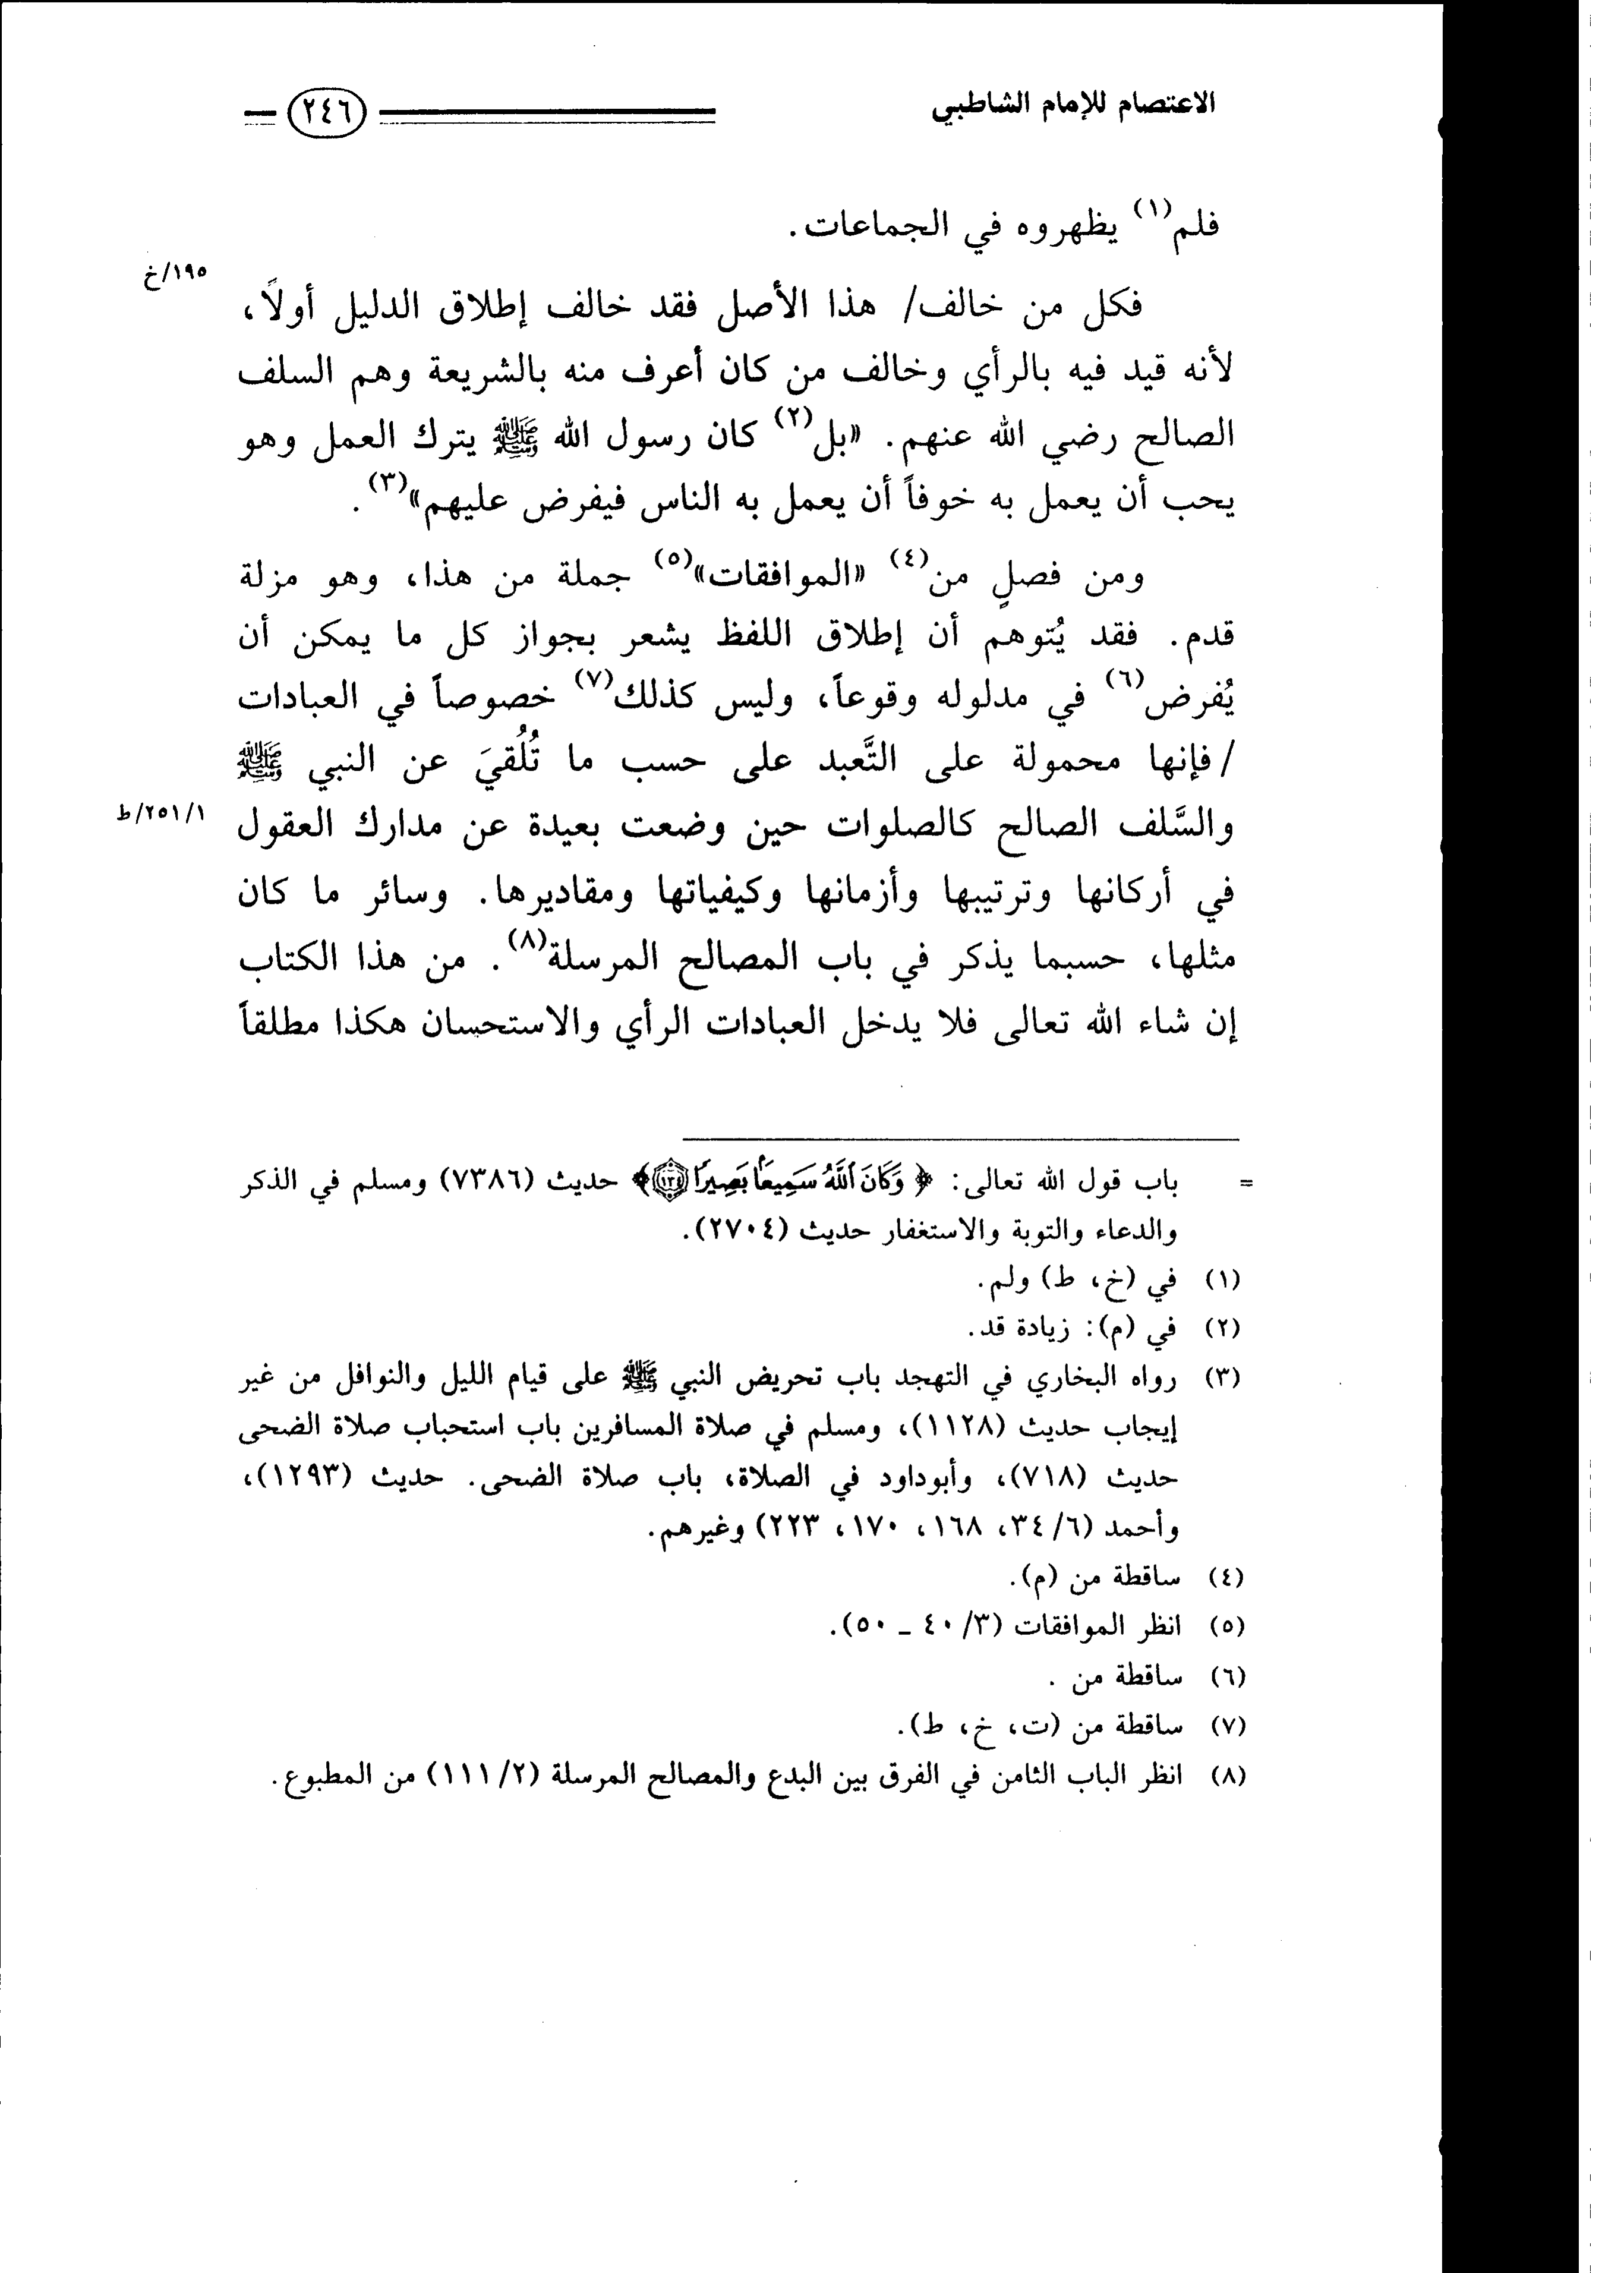 الاعتصام للإمام الشاطبي
٢٤٦
فلم(١) يظهروه في الجماعات.
١٩٥/خ
فكل من خالف/ هذا الأصل فقد خالف إطلاق الدليل أولاً،
لأنه قيد فيه بالرأي وخالف من كان أعرف منه بالشريعة وهم السلف
الصالح رضي الله عنهم. «بل(٢) كان رسول الله ﷺ يترك العمل وهو
يحب أن يعمل به خوفاً أن يعمل به الناس فيفرض عليهم»(٣).
ومن فصلٍ من(٤) «الموافقات»(٥) جملة من هذا، وهو مزلة
قدم. فقد يُتوهم أن إطلاق اللفظ يشعر بجواز كل ما يمكن أن
يُفرض(٦) في مدلوله وقوعاً، وليس كذلك(٧) خصوصاً في العبادات
/ فإنها محمولة على التَّعبد على حسب ما تُلُقيَ عن النبي ﷺ
١/٢٥١/ط
والسَّلف الصالح كالصلوات حين وضعت بعيدة عن مدارك العقول
في أركانها وترتيبها وأزمانها وكيفياتها ومقاديرها. وسائر ما كان
مثلها، حسبما يذكر في باب المصالح المرسلة(٨). من هذا الكتاب
إن شاء الله تعالى فلا يدخل العبادات الرأي والاستحسان هكذا مطلقاً
= باب قول الله تعالى: ﴿وَكَانَ ٱللَّهُ سَمِيعَۢا بَصِيرٗا ١٣٤﴾ حديث (٧٣٨٦) ومسلم في الذكر
والدعاء والتوبة والاستغفار حديث (٢٧٠٤).
(١) في (خ، ط) ولم.
(٢) في (م): زيادة قد.
(٣) رواه البخاري في التهجد باب تحريض النبي ﷺ على قيام الليل والنوافل من غير
إيجاب حديث (١١٢٨)، ومسلم في صلاة المسافرين باب استحباب صلاة الضحى
حديث (٧١٨)، وأبوداود في الصلاة، باب صلاة الضحى. حديث (١٢٩٣)،
وأحمد (٣٤/٦، ١٦٨، ١٧٠، ٢٢٣) وغيرهم.
(٤) ساقطة من (م).
(٥) انظر الموافقات (٤٠/٣ ـ ٥٠).
(٦) ساقطة من .
(٧) ساقطة من (ت، خ، ط).
(٨) انظر الباب الثامن في الفرق بين البدع والمصالح المرسلة (١١١/٢) من المطبوع.